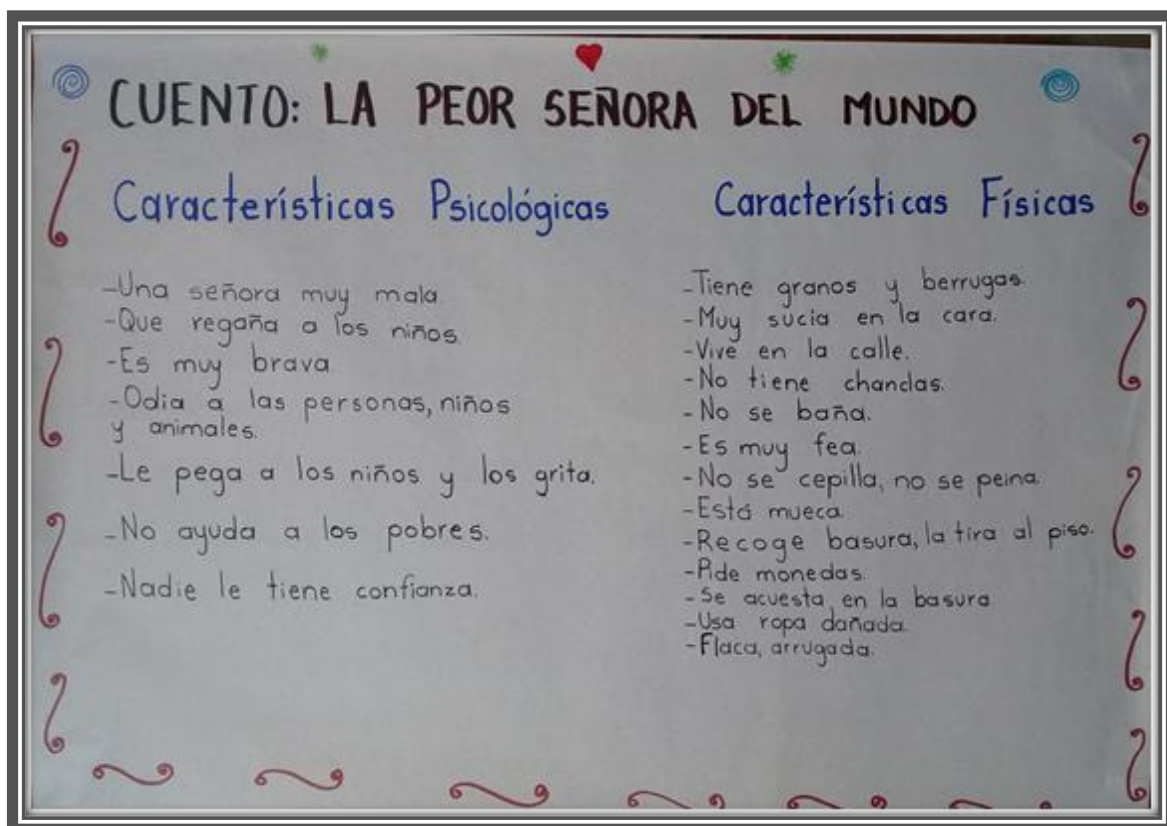 CUENTO: LA PEOR SEÑORA DEL MUNDO
Características Psicológicas
-Una señora muy mala
-Que regaña a los niños.
-Es muy brava
-Odia a las personas, niños
y animales.
-Le pega a los niños y los grita.
-No ayuda a los pobres.
-Nadie le tiene confianza.
Características Físicas
-Tiene granos y berrugas.
-Muy sucia en la cara.
-Vive en la calle.
-No tiene chanclas.
-No se baña.
-Es muy fea.
-No se cepilla, no se peina.
-Está mueca.
-Recoge basura, la tira al piso.
-Pide monedas.
-Se acuesta en la basura.
-Usa ropa dañada.
-Flaca, arrugada.